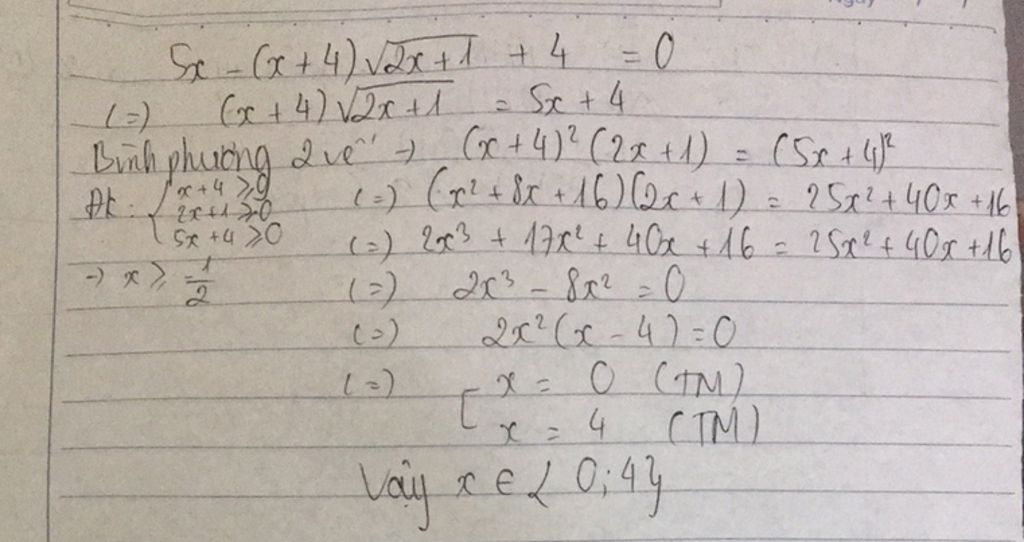 5x - (x + 4)√(2x + 1) + 4 = 0
(=) (x + 4)√(2x + 1) = 5x + 4
Bình phương 2 vế → (x + 4)² (2x + 1) = (5x + 4)²
Đk: { x + 4 ≥ 0
2x + 1 ≥ 0 (=) (x² + 8x + 16)(2x + 1) = 25x² + 40x + 16
5x + 4 ≥ 0 (=) 2x³ + 17x² + 40x + 16 = 25x² + 40x + 16
→ x ≥ -1/2 (=) 2x³ - 8x² = 0
(=) 2x² (x - 4) = 0
(=) [ x = 0 (TM)
x = 4 (TM)
Vậy x ∈ { 0; 4 }